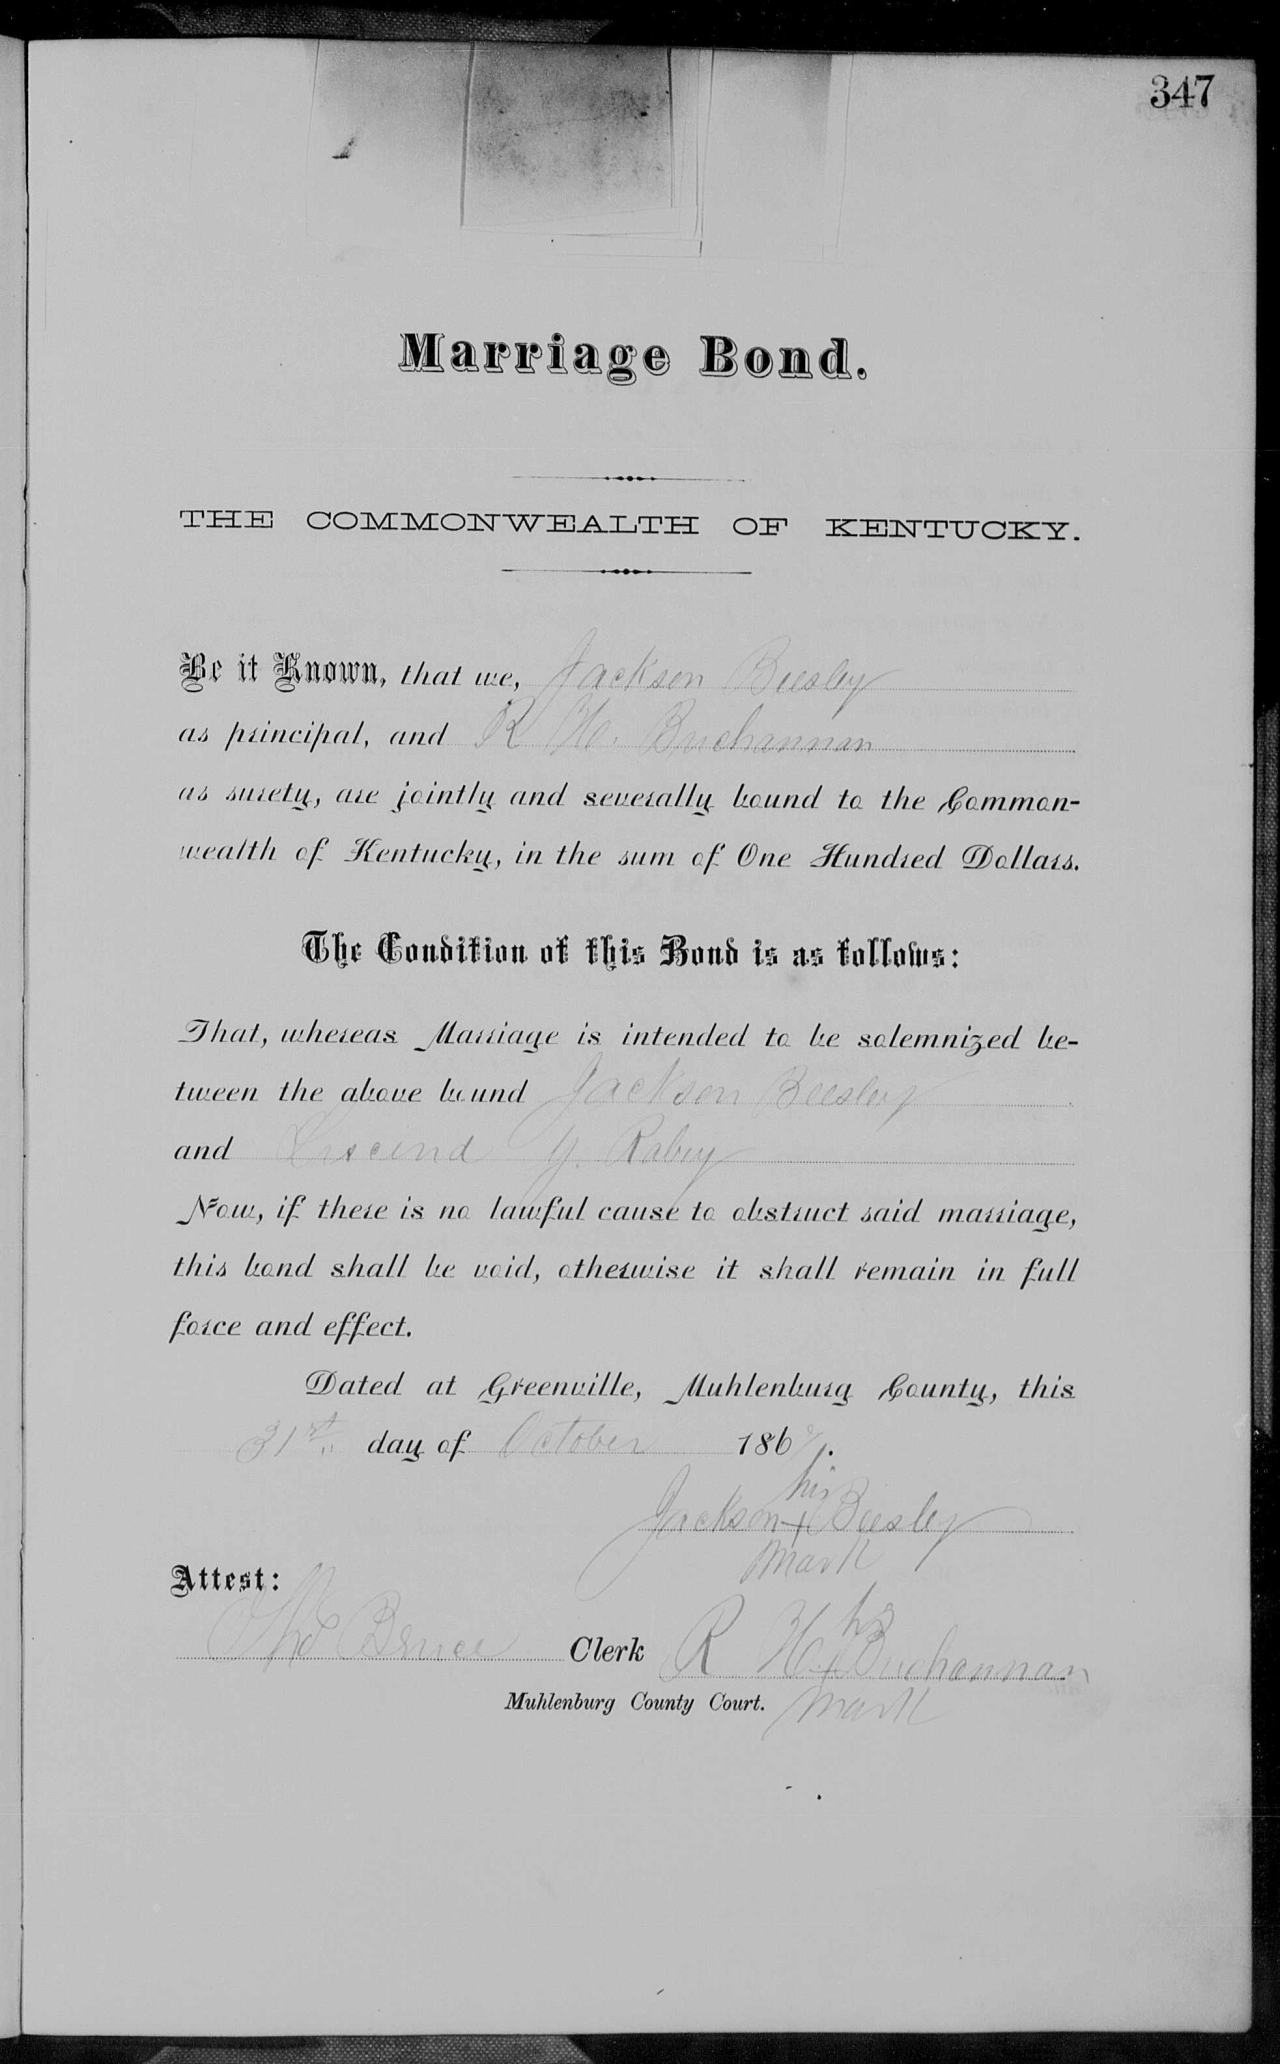 347
Marriage Bond.
THE COMMONWEALTH OF KENTUCKY.
Be it Known, that we, Jackson Beesley
as principal, and R H. Buchannan
as surety, are jointly and severally bound to the Common-
wealth of Kentucky, in the sum of One Hundred Dollars.
The Condition of this Bond is as follows:
That, whereas Marriage is intended to be solemnized be-
tween the above bound Jackson Beesley
and Y. Rabey
Now, if there is no lawful cause to obstruct said marriage,
this bond shall be void, otherwise it shall remain in full
force and effect.
Dated at Greenville, Muhlenburg County, this
31st day of October 186
his
Jackson + Beesley
mark
Attest:
his
Tho Bruce Clerk R H + Buchannan
Muhlenburg County Court. mark